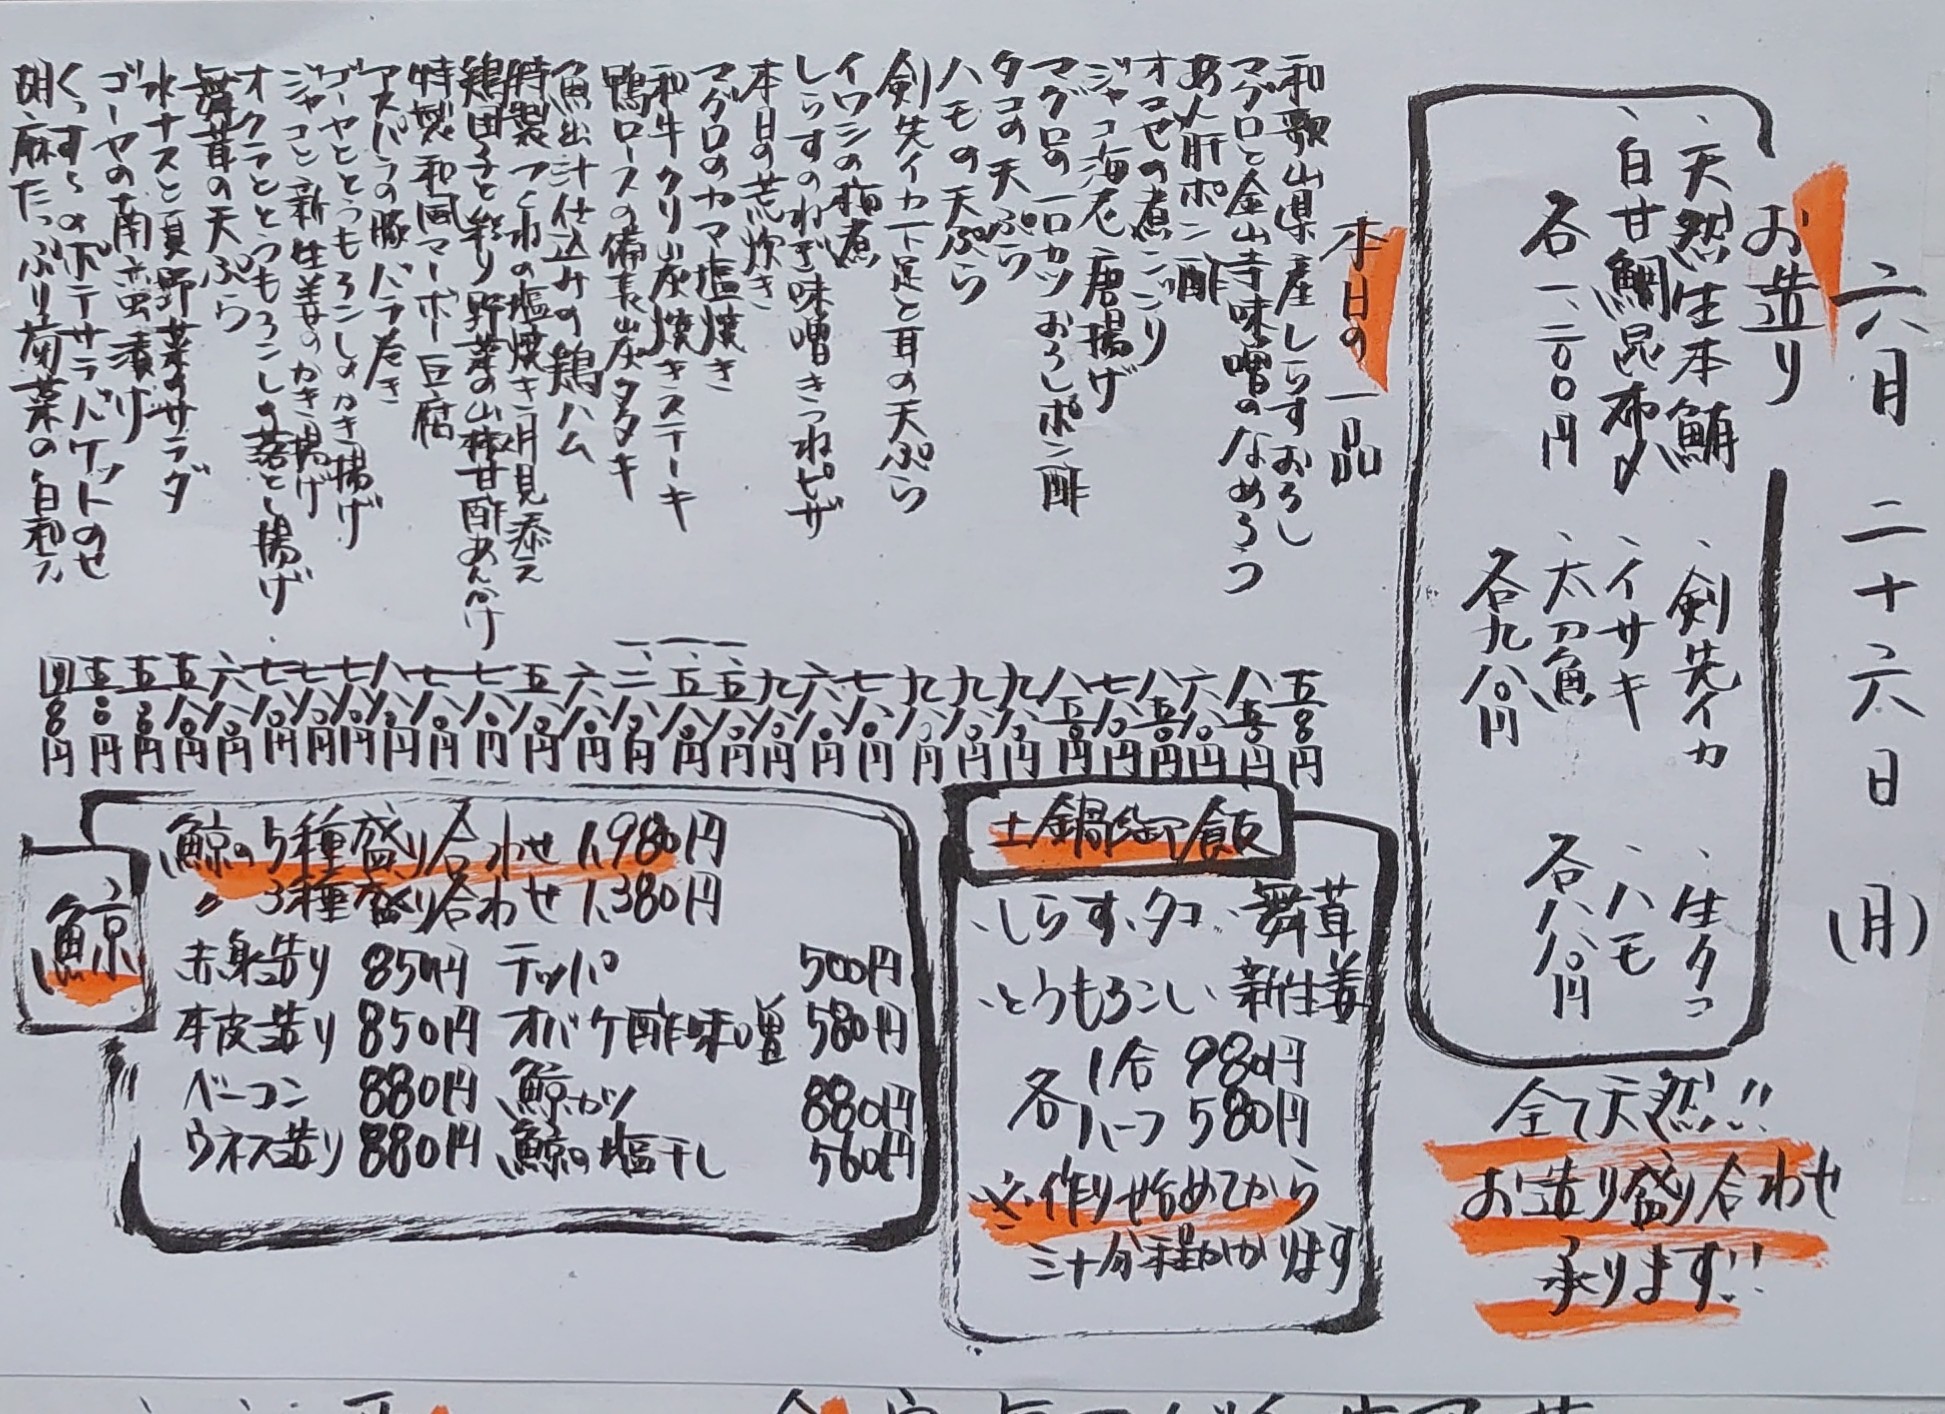 六月二十六日(月)
お造り
、天然生本鮪
、白甘鯛昆布〆
各一、二〇〇円
、剣先イカ
、イサキ
、太刀魚
各九八〇円
、生タコ
、ハモ
各八八〇円
全て天然!!
お造り盛り合わせ
承ります!!
本日の一品
和歌山県産しらすおろし 五八〇円
マグロと金山寺味噌のなめろう 八五〇円
あん肝ポン酢 六八〇円
オコゼの煮こごり 八五〇円
ジャコ海老唐揚げ 七八〇円
マグロの一口カツおろしポン酢 八五〇円
タコの天ぷら 九八〇円
ハモの天ぷら 九八〇円
剣先イカ下足と耳の天ぷら 九八〇円
イワシの梅煮 七八〇円
しらすのねぎ味噌きつねピザ 六八〇円
本日の荒炊き 九八〇円
マグロのカマ塩焼き 一、五八〇円
和牛クリ炭焼きステーキ 一、五八〇円
鴨ロースの備長炭タタキ 一、二八〇円
魚出汁仕込みの鶏ハム 六八〇円
特製つくねの塩焼き月見添え 五八〇円
鶏団子と彩り野菜の山椒甘酢あんかけ 七八〇円
特製和風マーボー豆腐 七八〇円
アスパラの豚バラ巻き 八八〇円
ゴーヤととうもろこしのかき揚げ 七八〇円
ジャコと新生姜のかき揚げ 七八〇円
オクラととうもろこしの落とし揚げ 七八〇円
舞茸の天ぷら 六八〇円
水ナスと夏野菜のサラダ 五八〇円
ゴーヤの南蛮漬け
くっすんのポテサラバケットのせ
胡麻たっぷり菊菜の白和え
土鍋御飯
、しらす、タコ、舞茸
、とうもろこし、新生姜
各 1合 980円
ハーフ 580円
※作り始めてから
三十分程かかります
鯨
鯨の5種盛り合わせ 1,980円
〃 3種盛り合わせ 1,380円
赤身造り 850円 テッパ 500円
本皮造り 850円 オバケ酢味噌 580円
ベーコン 880円 鯨カツ 880円
ウネス造り 880円 鯨の塩干し 560円